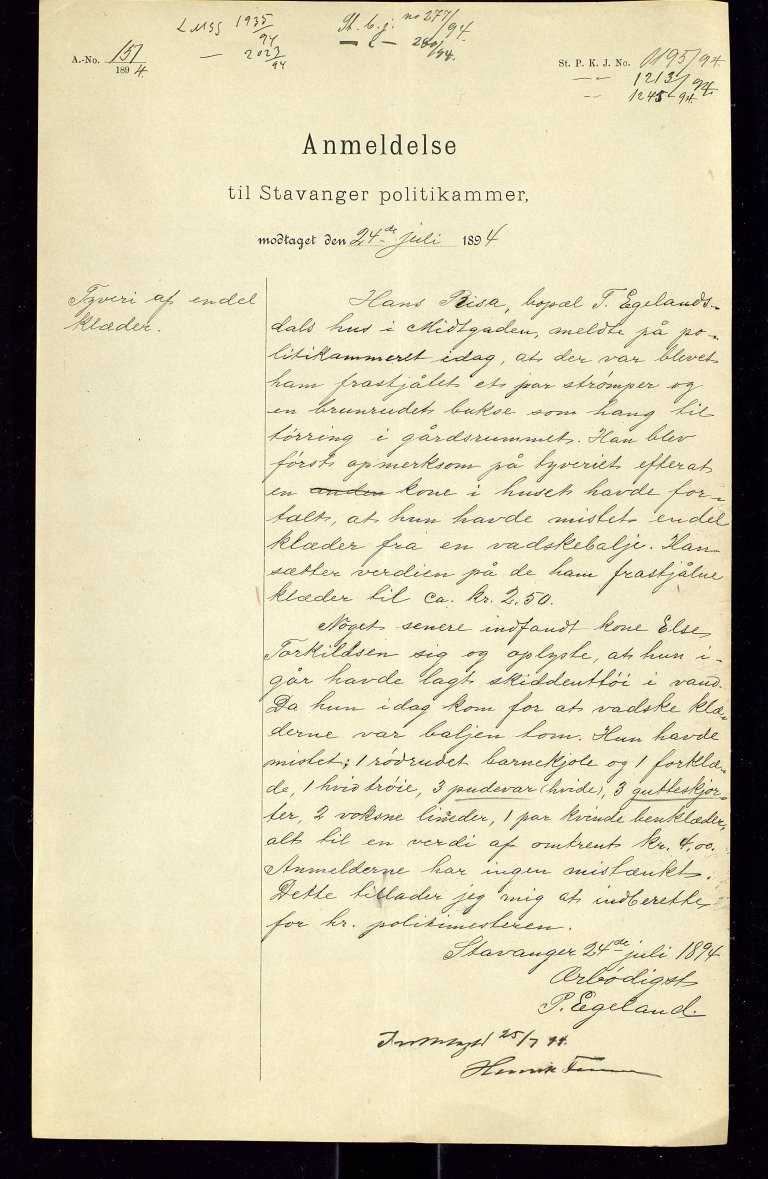 1935/94
2023/94
St. b. j. no 277/94.
280/94.
A.-No. 151/1894
St. P. K. J. No. 1195/94.
1213/94
1245/94
Anmeldelse
til Stavanger politikammer,
modtaget den 24de juli 1894
Tyveri af endel
klæder.
Hans Risa, bopæl T. Egelands-
dals hus i Midtgaden, meldte på po-
litikammeret idag, at der var blevet
ham frastjålet et par strømper og
en brunrudet bukse som hang til
tørring i gårdsrummet. Han blev
først opmerksom på tyveriet efterat
en anden kone i huset havde for-
talt, at hun havde mistet endel
klæder fra en vadskebalje. Han
sætter verdien på de ham frastjålne
klæder til ca. kr. 2.50.
Noget senere indfandt kone Else
Torkildsen sig og oplyste, at hun i-
går havde lagt skiddenttøi i vand.
Da hun idag kom for at vadske klæ-
derne var baljen tom. Hun havde
mistet; 1 rødrudet barnekjole og 1 forklæ-
de, 1 hvid trøie, 3 pudevar (hvide), 3 gutteskjor-
ter, 2 voksne linseder, 1 par kvinde benklæder,
alt til en verdi af omtrent kr. 4,00.
Anmelderne har ingen mistænkt.
Dette tillader jeg mig at indberette
for hr. politimesteren.
Stavanger 24de juli 1894
Ærbødigst
P. Egeland.
25/7 94.
Henrik